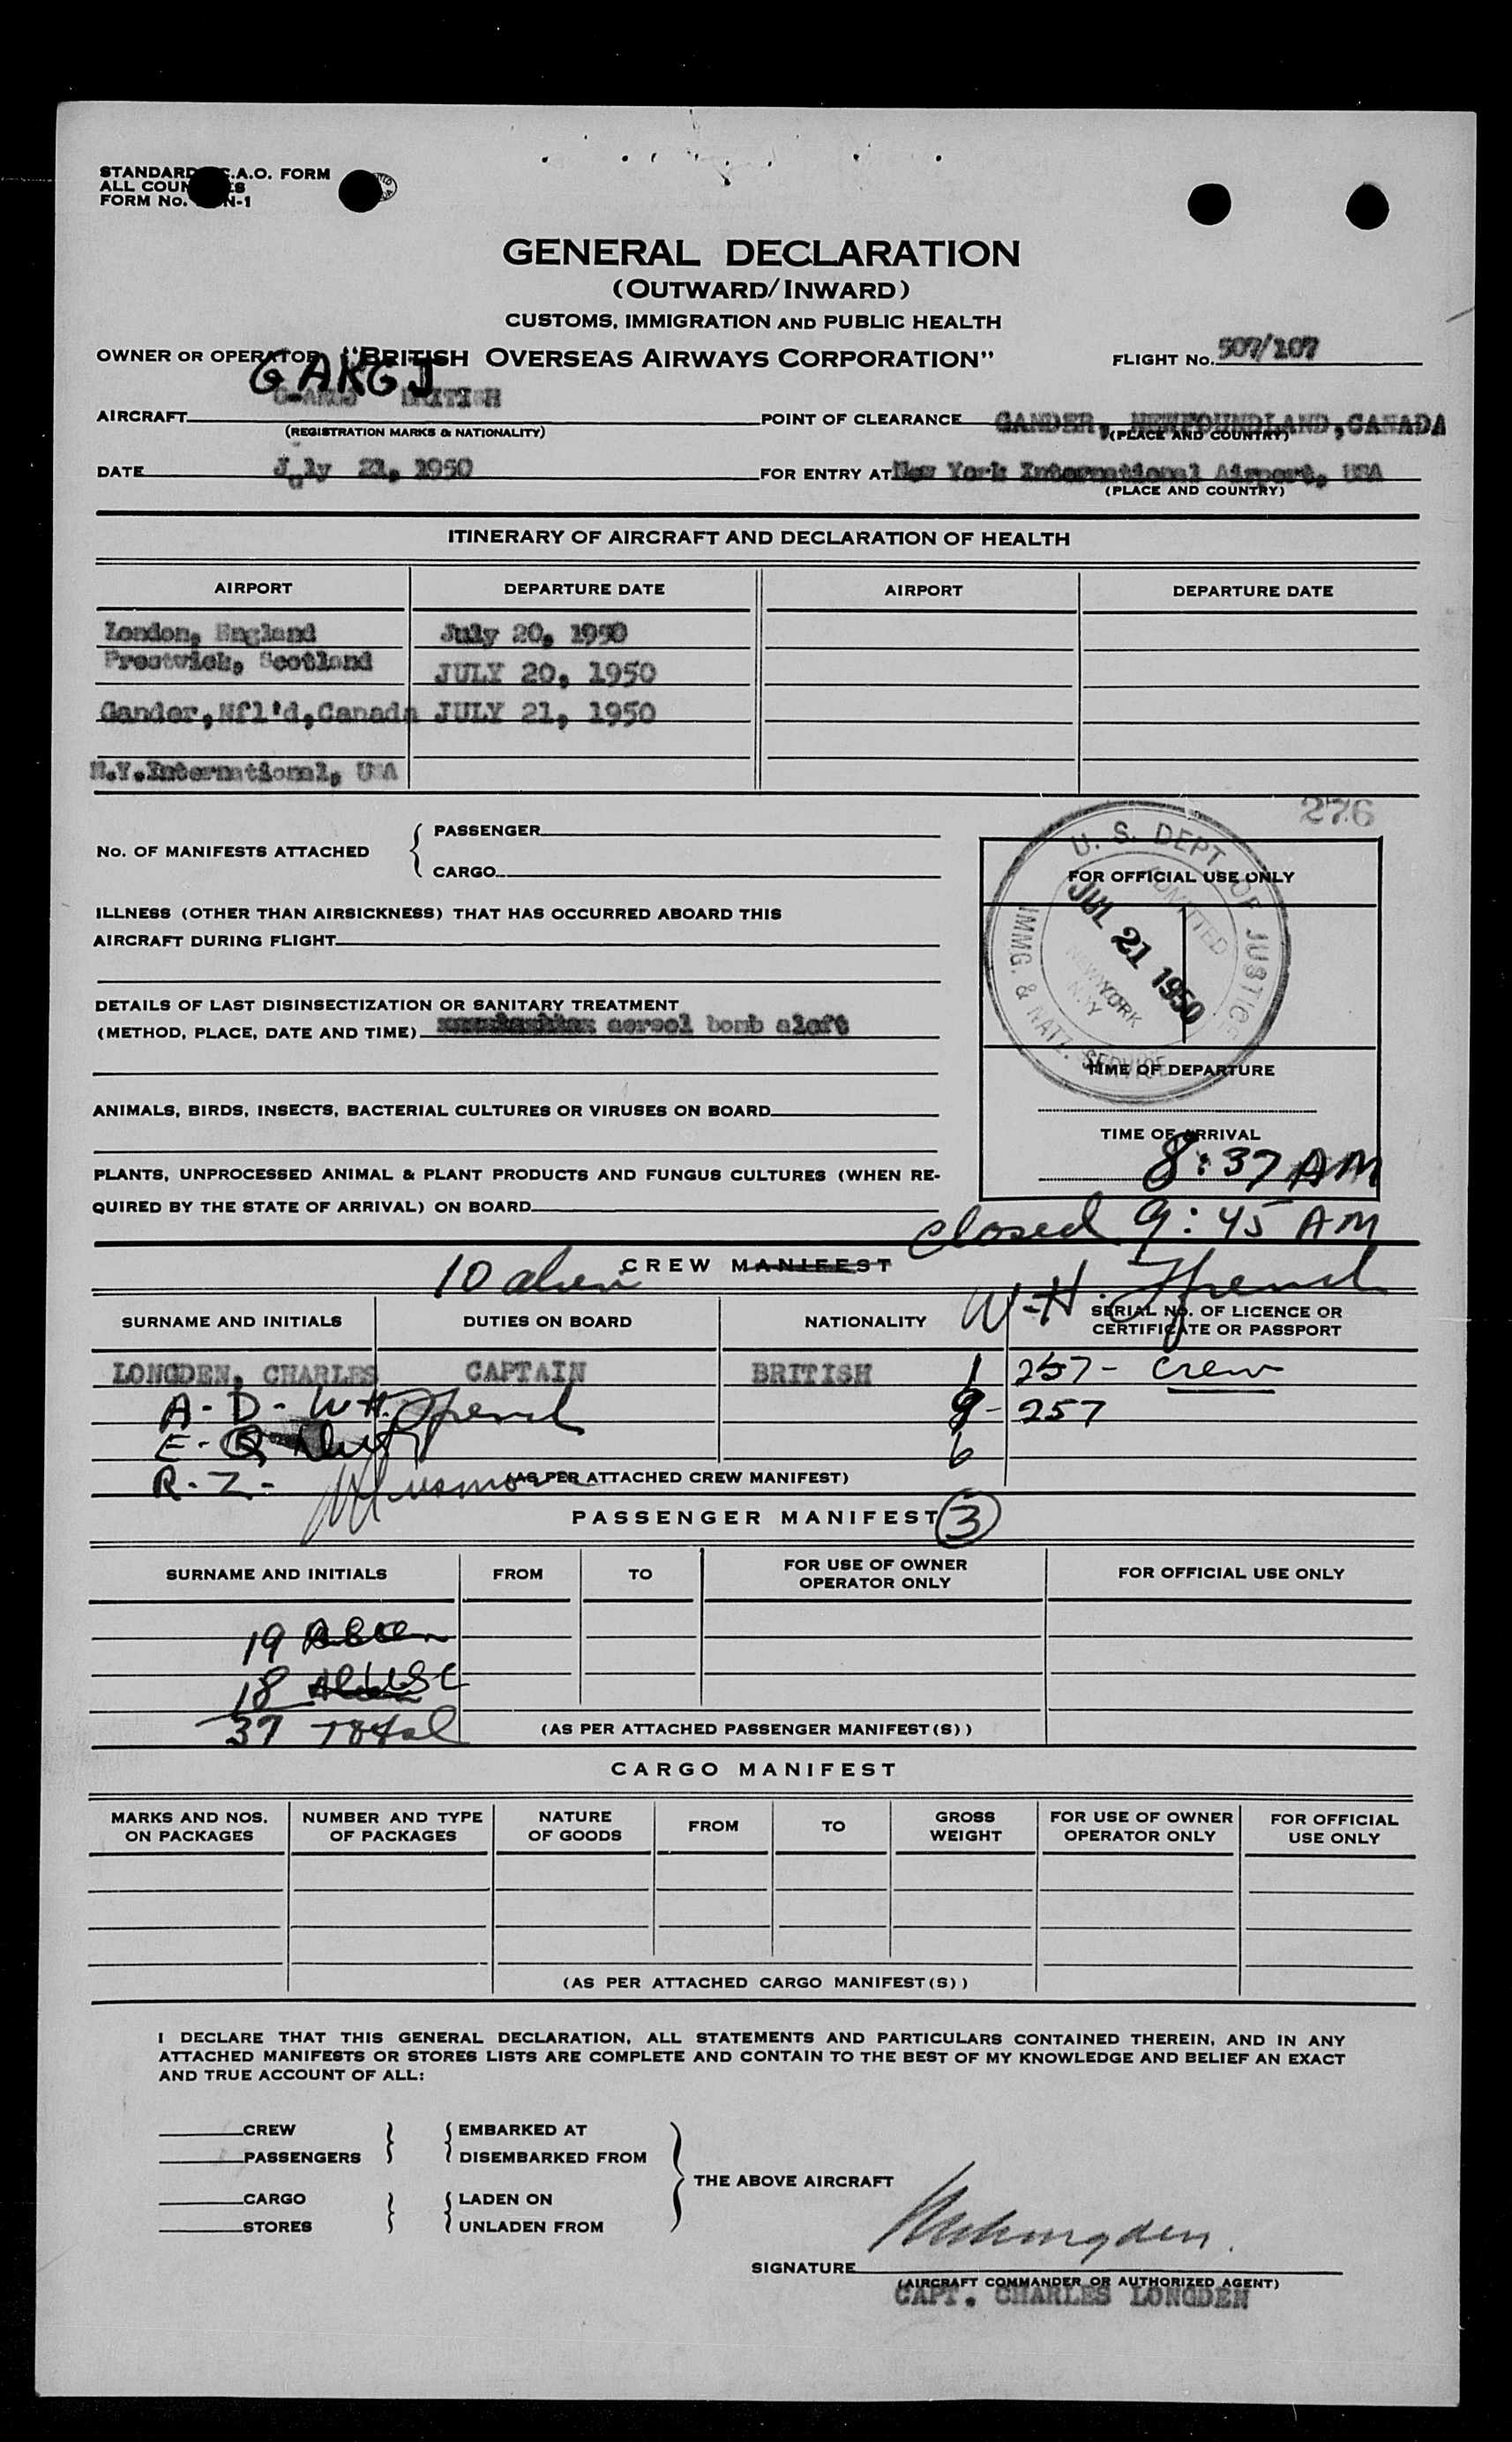 STANDARD I.C.A.O. FORM
ALL COUNTRIES
FORM No. N-1
GENERAL DECLARATION
(OUTWARD/INWARD)
CUSTOMS, IMMIGRATION AND PUBLIC HEALTH
OWNER OR OPERATOR "BRITISH OVERSEAS AIRWAYS CORPORATION" FLIGHT No. 507/107
G AKGJ
BRITISH
AIRCRAFT POINT OF CLEARANCE GANDER, NEWFOUNDLAND, CANADA
(REGISTRATION MARKS & NATIONALITY) (PLACE AND COUNTRY)
DATE July 21, 1950 FOR ENTRY AT New York International Airport, USA
(PLACE AND COUNTRY)
ITINERARY OF AIRCRAFT AND DECLARATION OF HEALTH
AIRPORT DEPARTURE DATE AIRPORT DEPARTURE DATE
London, England July 20, 1950
Prestwick, Scotland JULY 20, 1950
Gander, Nfl'd, Canada JULY 21, 1950
N.Y. International, USA
276
No. OF MANIFESTS ATTACHED { PASSENGER
CARGO
FOR OFFICIAL USE ONLY
U. S. DEPT OF JUSTICE
IMMG. & NATZ. SERVICE
ADMITTED
JUL 21 1950
NEW YORK
N.Y.
ILLNESS (OTHER THAN AIRSICKNESS) THAT HAS OCCURRED ABOARD THIS
AIRCRAFT DURING FLIGHT
DETAILS OF LAST DISINSECTIZATION OR SANITARY TREATMENT
(METHOD, PLACE, DATE AND TIME) aersol bomb aloft
TIME OF DEPARTURE
ANIMALS, BIRDS, INSECTS, BACTERIAL CULTURES OR VIRUSES ON BOARD
TIME OF ARRIVAL
8:37 AM
PLANTS, UNPROCESSED ANIMAL & PLANT PRODUCTS AND FUNGUS CULTURES (WHEN RE-
QUIRED BY THE STATE OF ARRIVAL) ON BOARD
closed 9:45 AM
10 alien CREW MANIFEST
W-H. French
SURNAME AND INITIALS DUTIES ON BOARD NATIONALITY SERIAL No. OF LICENCE OR
CERTIFICATE OR PASSPORT
LONGDEN, CHARLES CAPTAIN BRITISH 1 257 - crew
A - D - W-H. French 9 - 257
E - Q 6
R - Z - (AS PER ATTACHED CREW MANIFEST)
PASSENGER MANIFEST 3
SURNAME AND INITIALS FROM TO FOR USE OF OWNER
OPERATOR ONLY FOR OFFICIAL USE ONLY
19 Alien
18 USC
37 Total (AS PER ATTACHED PASSENGER MANIFEST(S))
CARGO MANIFEST
MARKS AND NOS.
ON PACKAGES NUMBER AND TYPE
OF PACKAGES NATURE
OF GOODS FROM TO GROSS
WEIGHT FOR USE OF OWNER
OPERATOR ONLY FOR OFFICIAL
USE ONLY
(AS PER ATTACHED CARGO MANIFEST(S))
I DECLARE THAT THIS GENERAL DECLARATION, ALL STATEMENTS AND PARTICULARS CONTAINED THEREIN, AND IN ANY
ATTACHED MANIFESTS OR STORES LISTS ARE COMPLETE AND CONTAIN TO THE BEST OF MY KNOWLEDGE AND BELIEF AN EXACT
AND TRUE ACCOUNT OF ALL:
CREW EMBARKED AT
PASSENGERS DISEMBARKED FROM
THE ABOVE AIRCRAFT
CARGO LADEN ON
STORES UNLADEN FROM
SIGNATURE
(AIRCRAFT COMMANDER OR AUTHORIZED AGENT)
CAPT. CHARLES LONGDEN